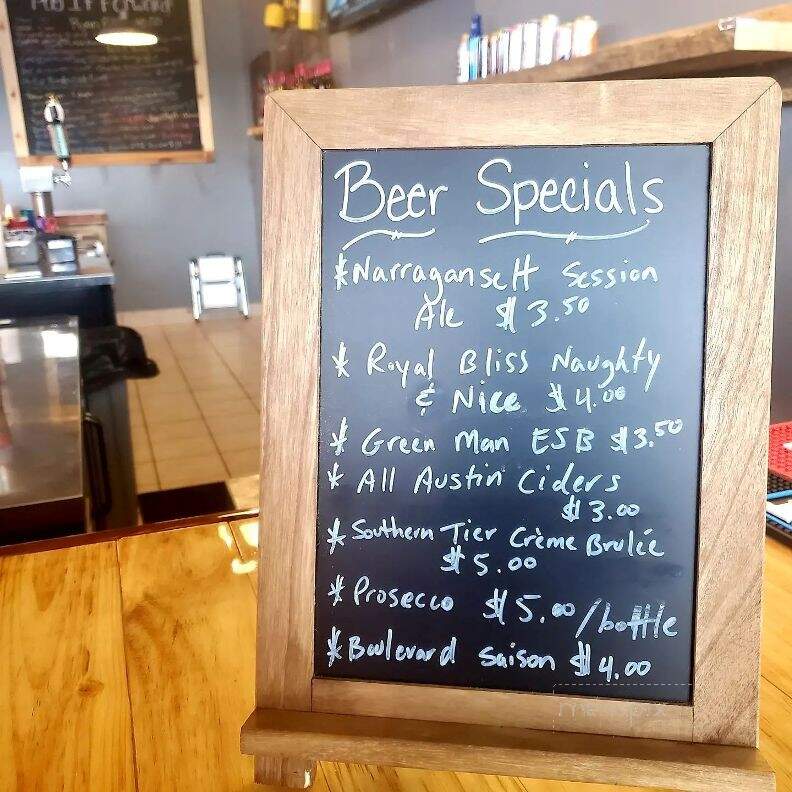 Beer Specials
*Narragansett Session
Ale $3.50
* Royal Bliss Naughty
& Nice $4.00
* Green Man ESB $3.50
* All Austin Ciders
$3.00
* Southern Tier Crème Brulée
$5.00
* Prosecco $5.00/bottle
*Boulevard Saison $4.00